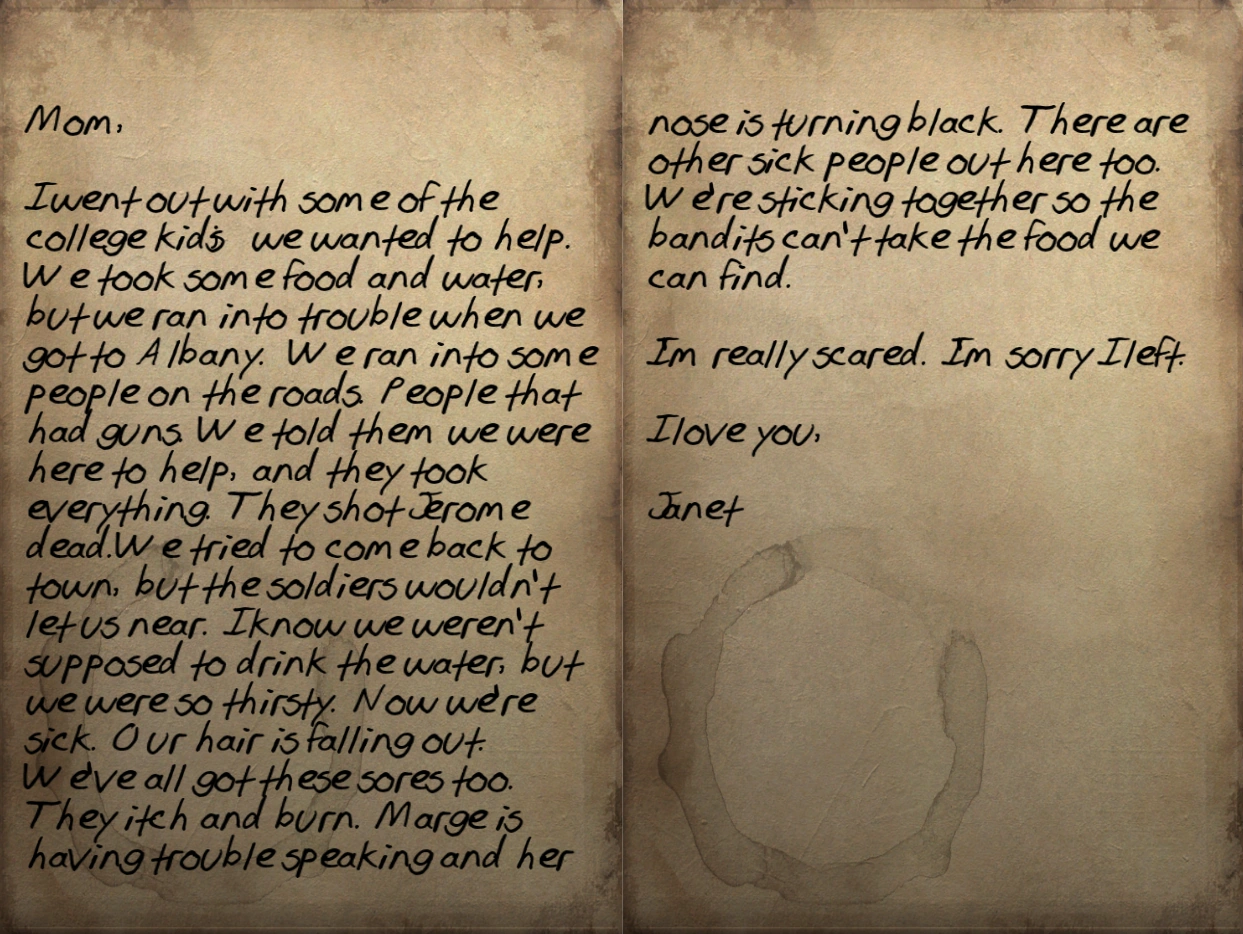 Mom,
I went out with some of the
college kids we wanted to help.
We took some food and water,
but we ran into trouble when we
got to Albany. We ran into some
people on the roads. People that
had guns. We told them we were
here to help, and they took
everything. They shot Jerome
dead. We tried to come back to
town, but the soldiers wouldn't
let us near. I know we weren't
supposed to drink the water, but
we were so thirsty. Now we're
sick. Our hair is falling out.
We've all got these sores too.
They itch and burn. Marge is
having trouble speaking and her
nose is turning black. There are
other sick people out here too.
We're sticking together so the
bandits can't take the food we
can find.
Im really scared. Im sorry I left.
I love you,
Janet